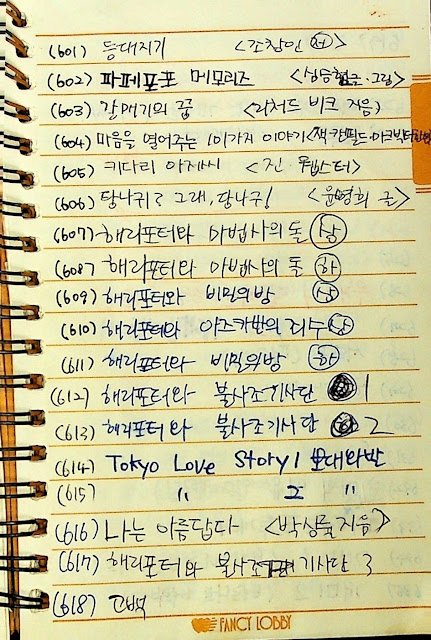 (601) 등대지기 <조창인 저>
(602) 파페포포 메모리즈 <심승현 글·그림>
(603) 갈매기의 꿈 <리처드 바크 지음>
(604) 마음을 열어주는 101가지 이야기 <잭 캔필드·마크 빅터
(605) 키다리 아저씨 <진·웹스터>
(606) 당나귀? 그래, 당나귀! <윤영희 글>
(607) 해리포터와 마법사의 돌 상
(608) 해리포터와 마법사의 돌 하
(609) 해리포터와 비밀의 방 상
(610) 해리포터와 아즈카반의 죄수 상
(611) 해리포터와 비밀의방 하
(612) 해리포터와 불사조기사단 1
(613) 해리포터와 불사조기사단 2
(614) Tokyo Love Story 1
(615) " 2 "
(616) 나는 아름답다 <박상률 지음>
(617) 해리포터와 불사조 기사단 3
(618) 고백
FANCY LOBBY